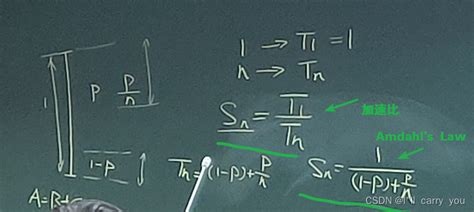 1 → T₁ = 1
n → Tₙ
1
P
P/n
1-P
Sₙ = T₁/Tₙ
加速比
Amdahl's Law
Tₙ = (1-P)+P/n
Sₙ = 1/((1-P)+P/n)
CSDN @I_carry_you